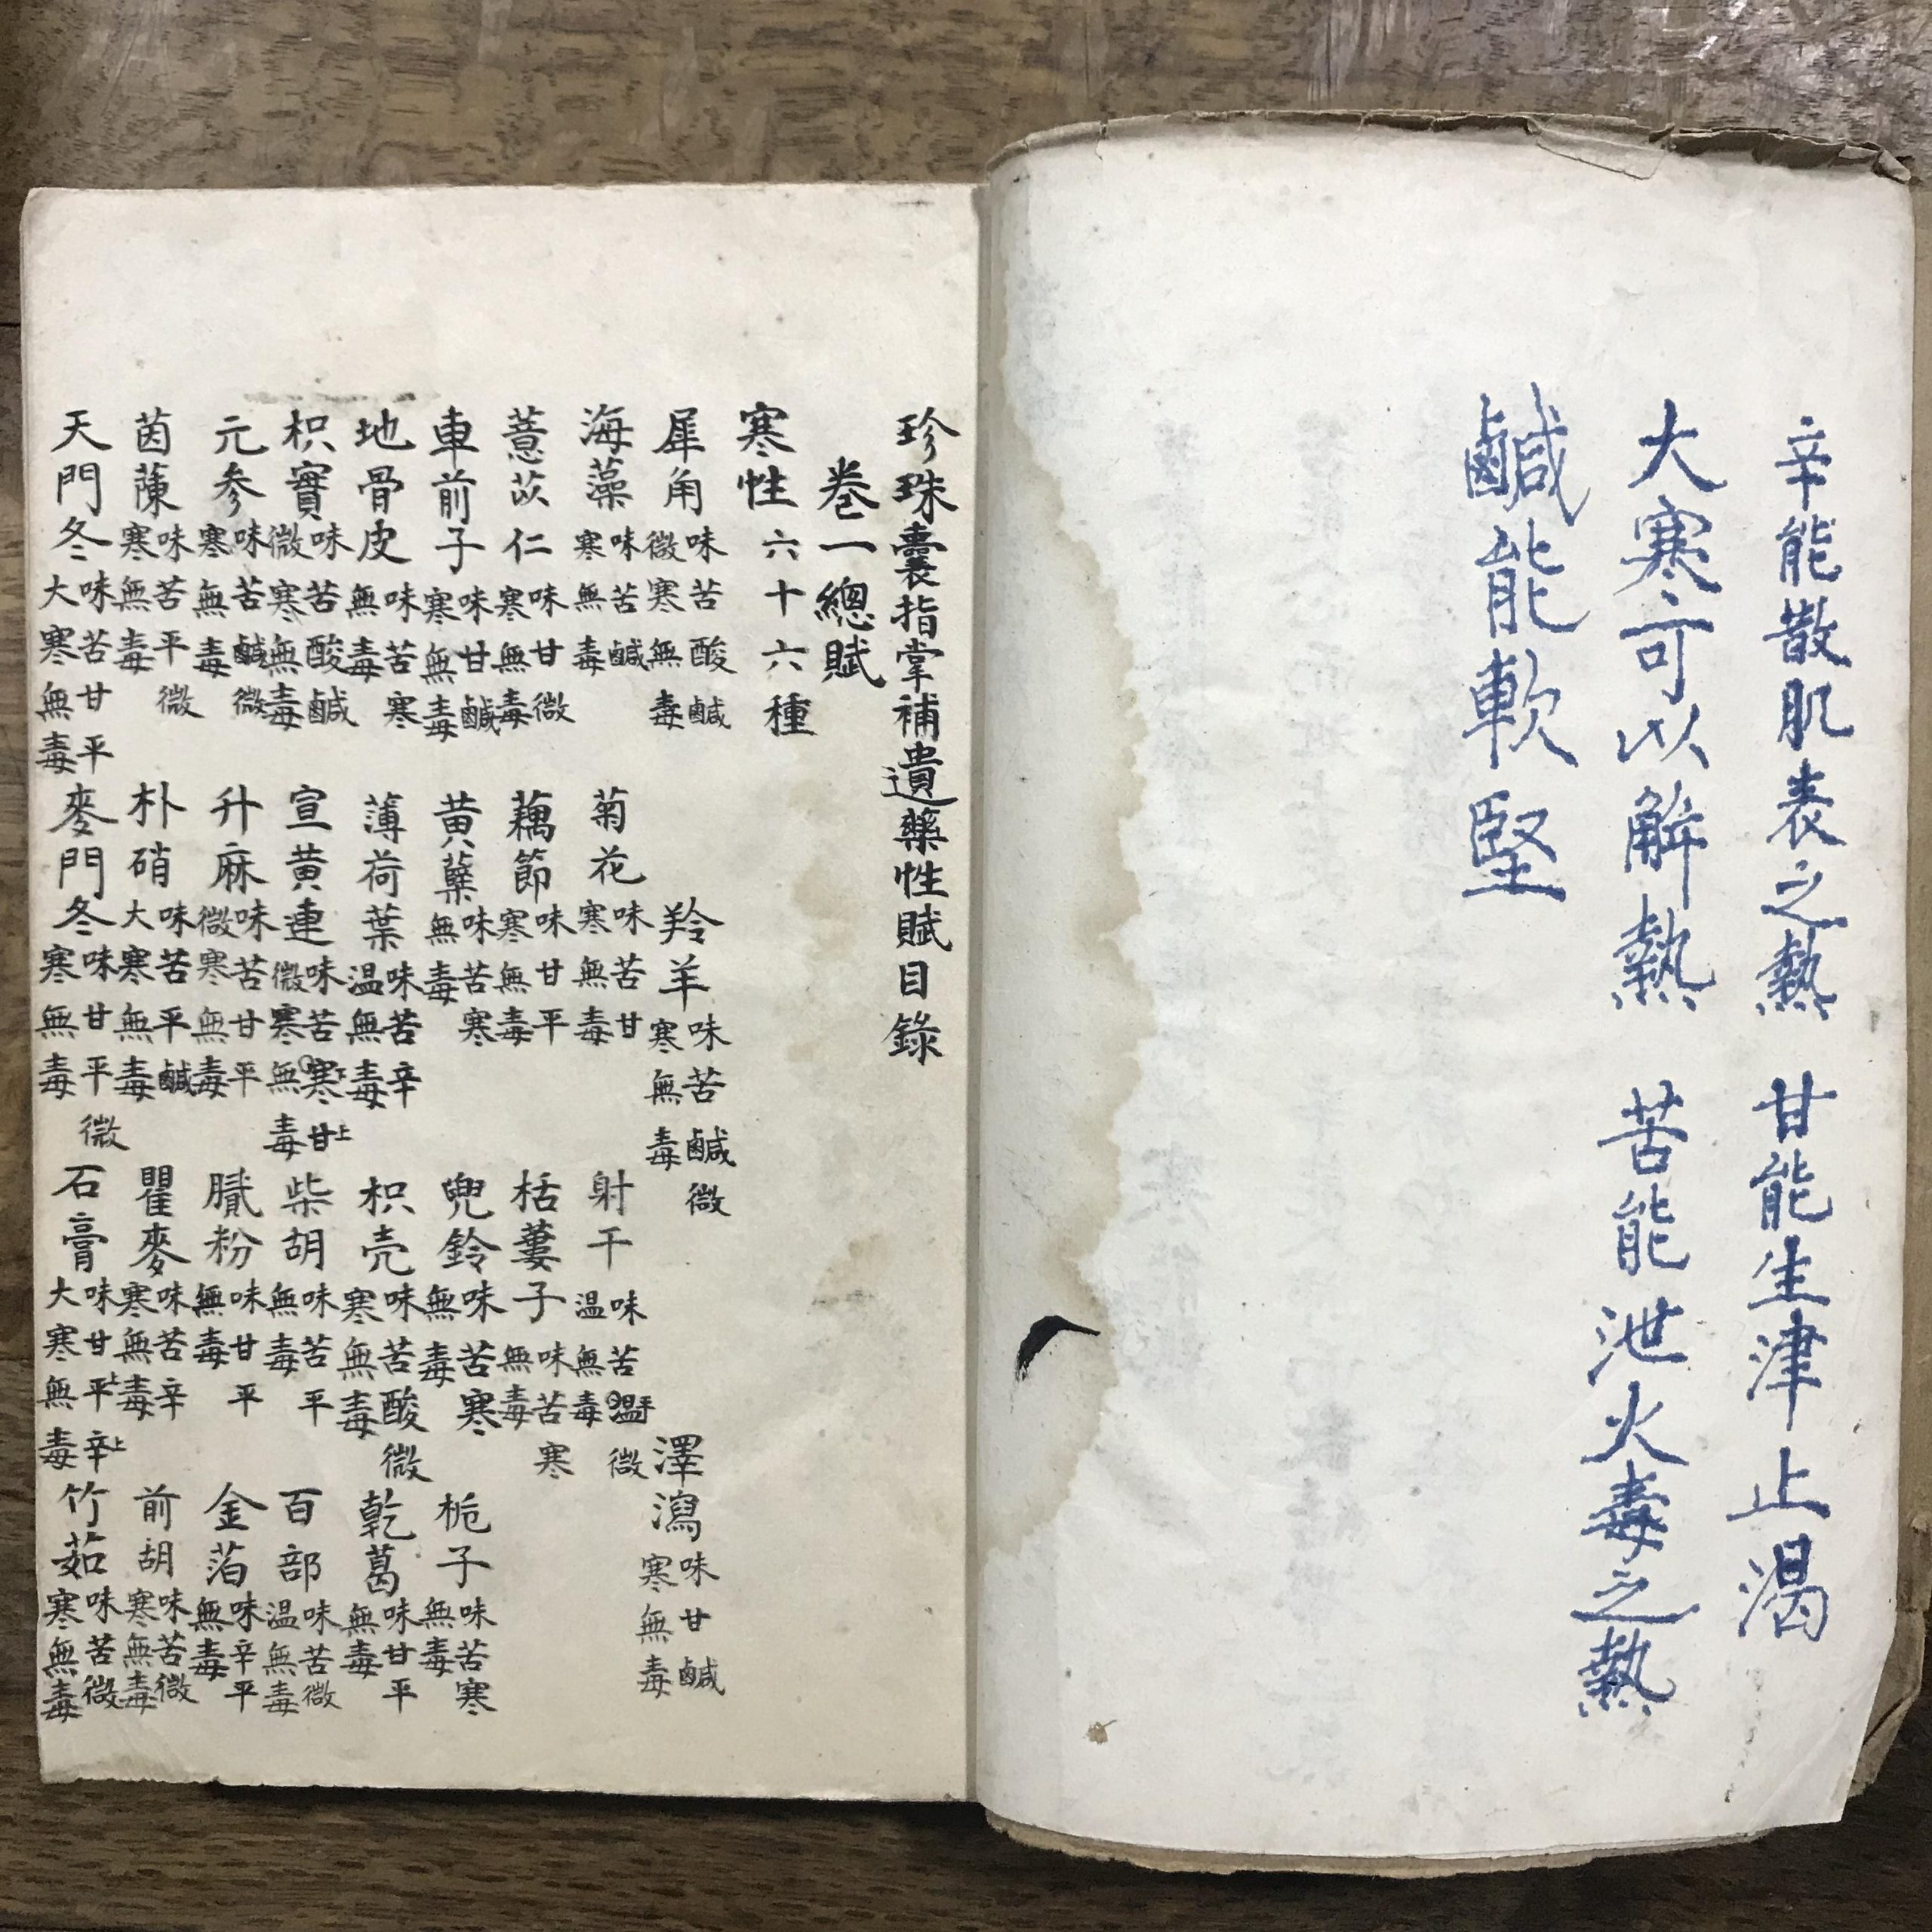 辛能散肌表之熱　甘能生津止渴
大寒可以解熱　苦能泄火毒之熱
鹹能軟堅
珍珠囊指掌補遺藥性賦目錄
卷一總賦
寒性六十六種
犀角味苦酸鹹微寒無毒　羚羊味苦鹹微寒無毒　澤瀉味甘鹹寒無毒
海藻味苦鹹寒無毒　菊花味苦甘寒無毒　射干味苦溫平微温無毒
薏苡仁味甘微寒無毒　藕節味甘平寒無毒　栝蔞子味苦寒無毒
車前子味甘鹹寒無毒　黄蘗味苦寒無毒　兜鈴味苦寒無毒　栀子味苦寒無毒
地骨皮味苦寒無毒　薄荷葉味苦辛温無毒　枳壳味苦酸微寒無毒　乾葛味甘平無毒
枳實味苦酸鹹微寒無毒　宣黄連味苦寒下甘上微寒無毒　柴胡味苦平無毒　百部味苦微温無毒
元參味苦鹹微寒無毒　升麻味苦甘平微寒無毒　膩粉味甘平無毒　金箔味辛平無毒
茵蔯味苦平微寒無毒　朴硝味苦平鹹大寒無毒　瞿麥味苦辛寒無毒　前胡味苦微寒無毒
天門冬味苦甘平大寒無毒　麥門冬味甘平微寒無毒　石膏味甘平上辛上大寒無毒　竹茹味苦微寒無毒